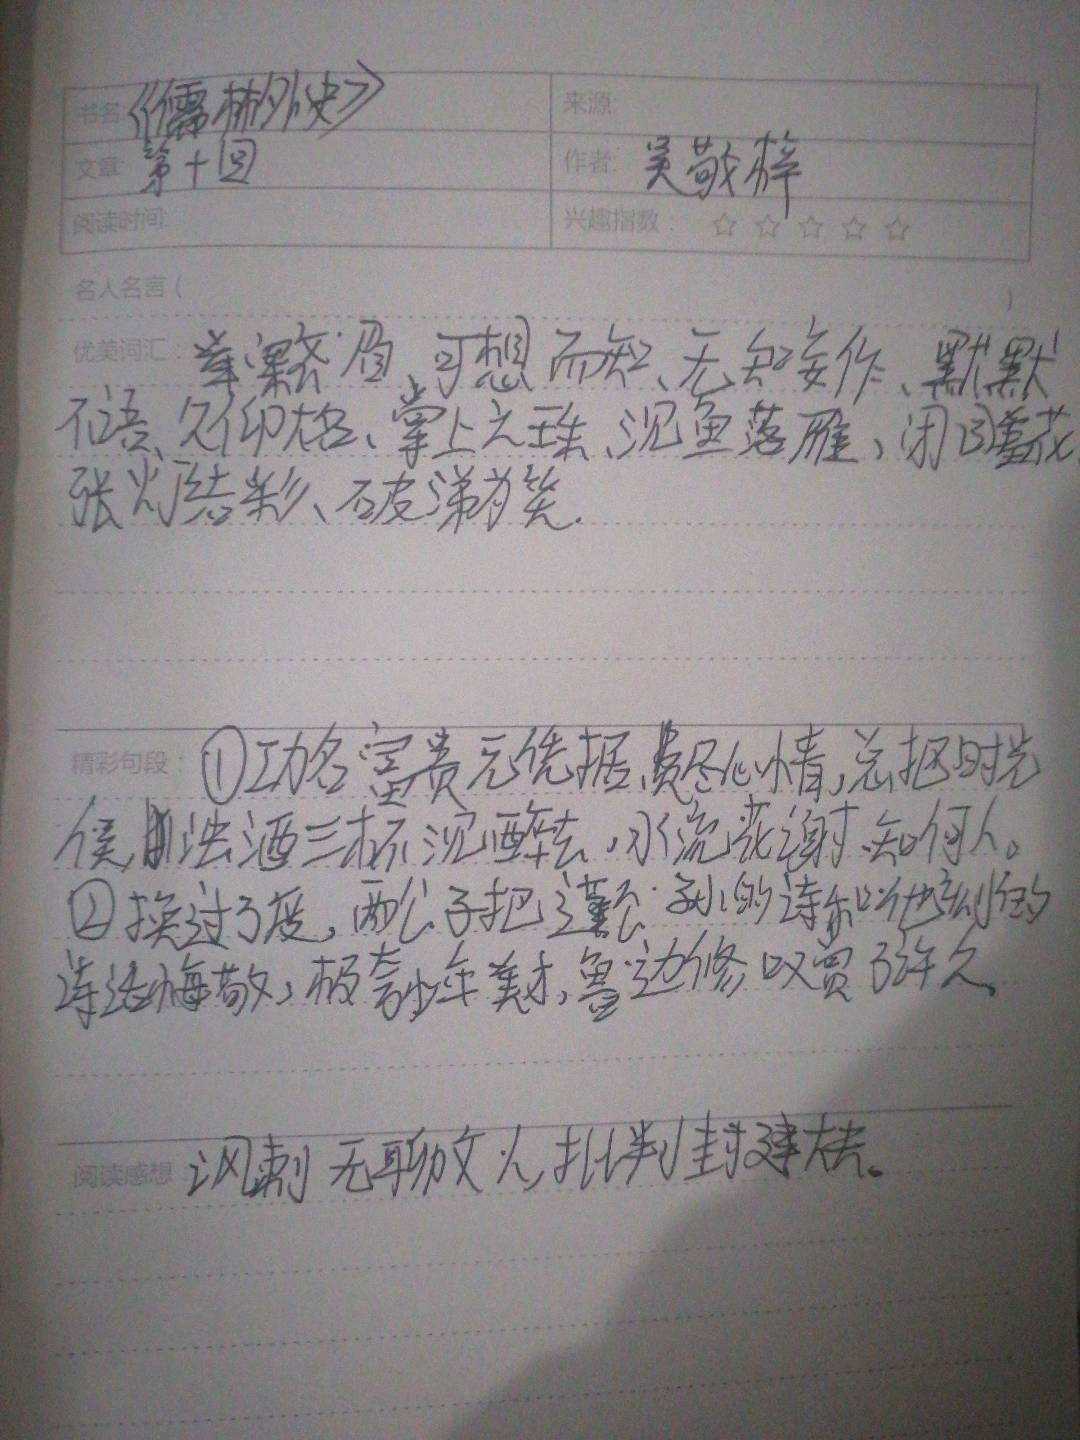 书名:《儒林外史》 来源:
文章: 第十回 作者: 吴敬梓
阅读时间: 兴趣指数: ☆ ☆ ☆ ☆ ☆
名人名言( )
优美词汇: 眉、可想而知、无知妄作、默默
不语、久仰大名、掌上之珠、沉鱼落雁、闭月羞花、
张灯结彩、破涕为笑.
精彩句段: ①功名富贵无凭据,费尽心情,总把时光
误,浊酒三杯沉醉去,水流花谢知何人。
②换过了席,两公子把蘧公孙的诗和他刻的
诗话请教,极夸少年美才,鲁边修叹赏了许久、
阅读感想: 讽刺无聊文人,批判封建